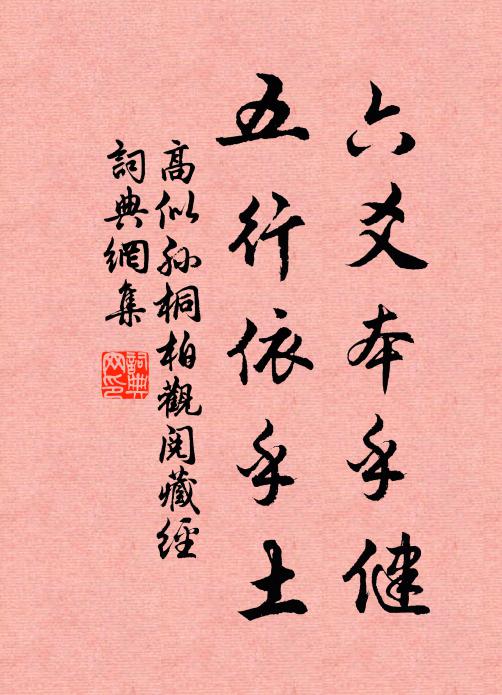 六爻本乎健
五行依乎土
高似孙桐柏觀閱藏經
詞典網集
詞典網印